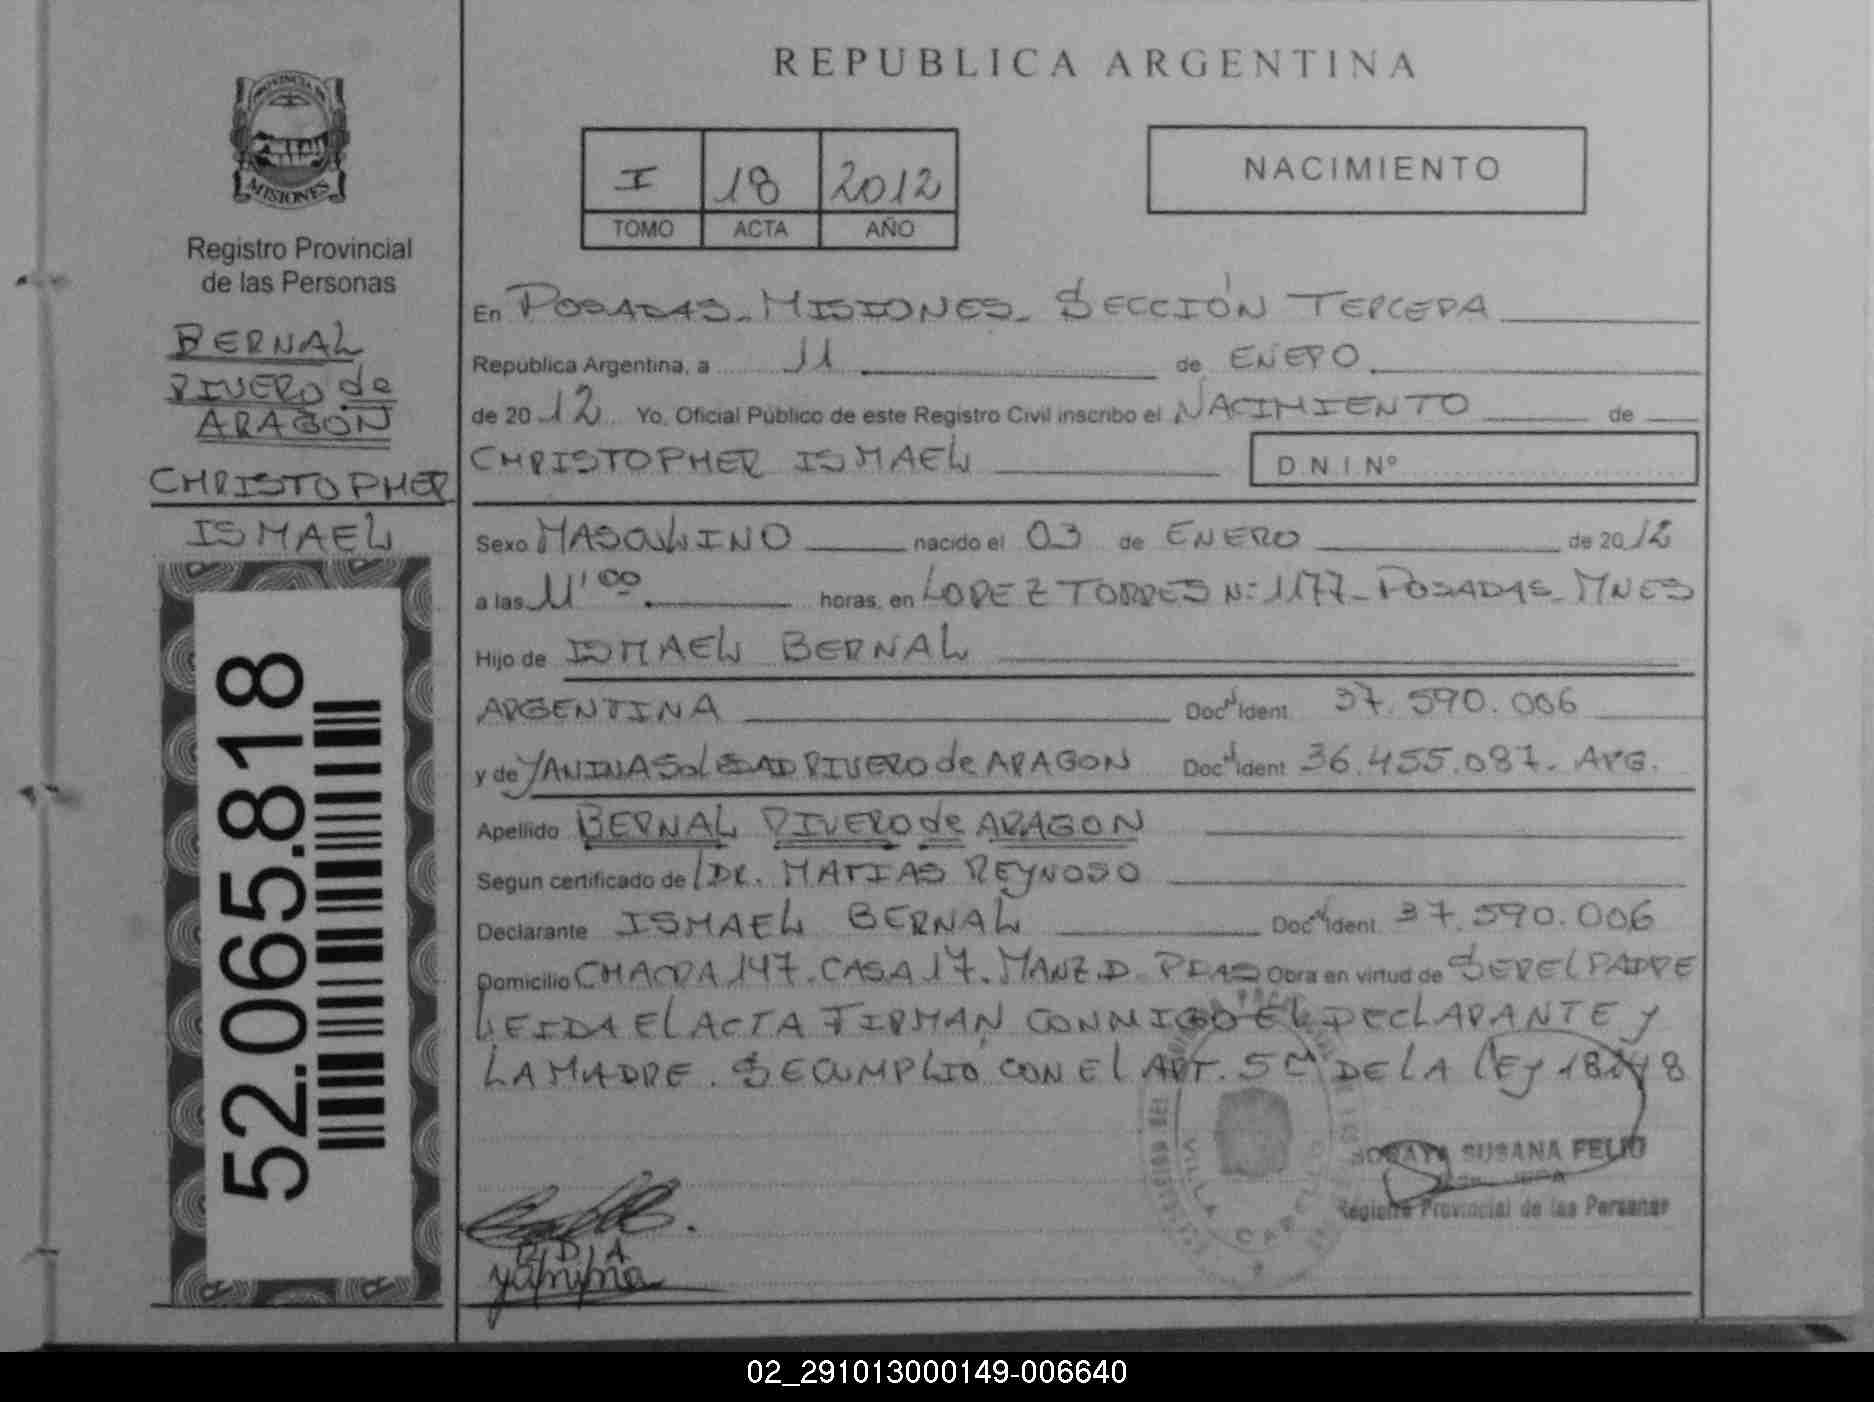 REPUBLICA ARGENTINA
PROVINCIA DE
MISIONES
Registro Provincial
de las Personas
BERNAL
RIVERO de
ARAGON
CHRISTOPHER
ISMAEL
52.065.818
I 18 2012
TOMO ACTA AÑO
NACIMIENTO
En POSADAS - MISIONES - SECCIÓN TERCERA
República Argentina, a 11 de ENERO
de 20 12 Yo, Oficial Público de este Registro Civil inscribo el NACIMIENTO de
CHRISTOPHER ISMAEL D.N.I. Nº
Sexo MASCULINO nacido el 03 de ENERO de 20 12
a las 11'00 horas, en LOPEZ TORRES Nº 1177 - POSADAS - MNES
Hijo de ISMAEL BERNAL
ARGENTINA Doc. Ident. 37.590.006
y de YANINA SOLEDAD RIVERO de ARAGON Doc. Ident. 36.455.087 - ARG.
Apellido BERNAL RIVERO de ARAGON
Segun certificado de DR. MATIAS REYNOSO
Declarante ISMAEL BERNAL Doc. Ident. 37.590.006
Domicilio CHACRA 147 - CASA 17 - MANZ D - PDAS Obra en virtud de SER EL PADRE
LEIDA EL ACTA FIRMAN CONMIGO EL DECLARANTE Y
LA MADRE. SE CUMPLIO CON EL ART. 5º DE LA LEY 18248
VILLA CABELLO
SORAYA SUSANA FELIU
Registro Provincial de las Personas
R D A
yanina
02_291013000149-006640